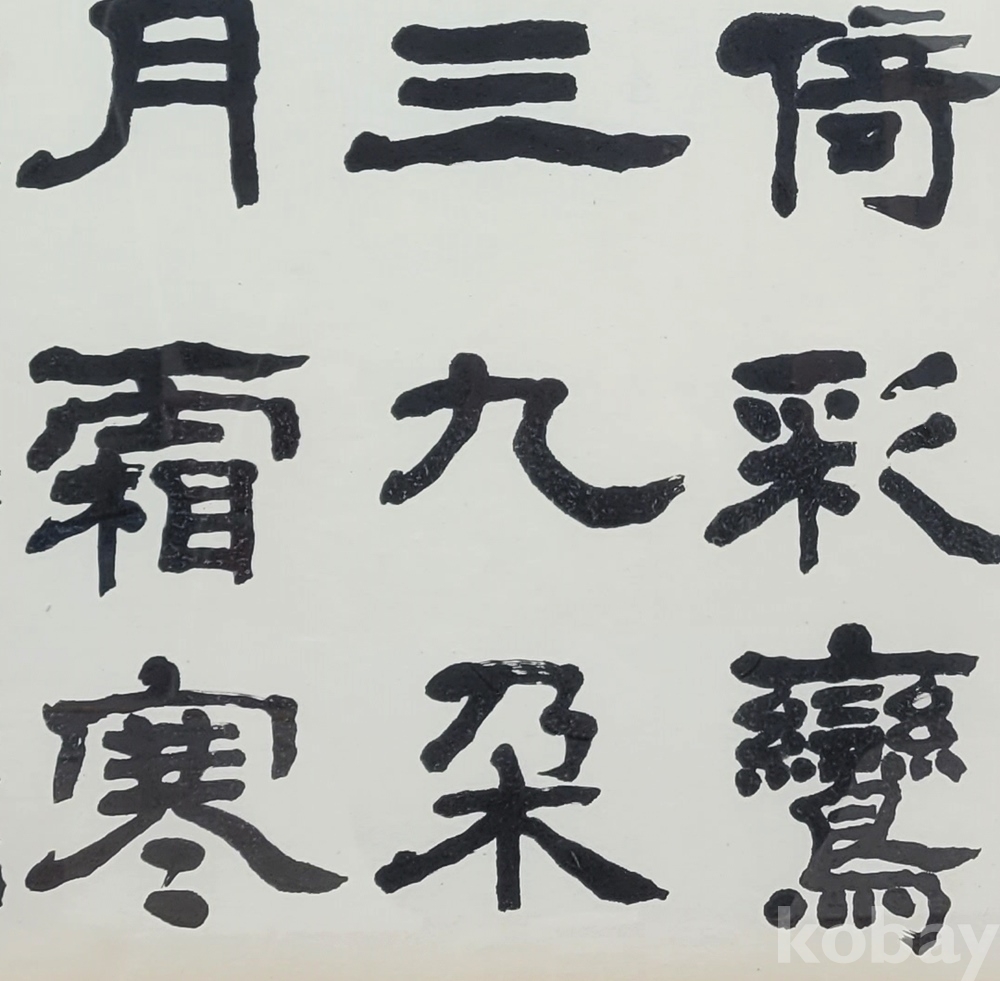 倚彩鸞
三九朶
月霜寒
kobay